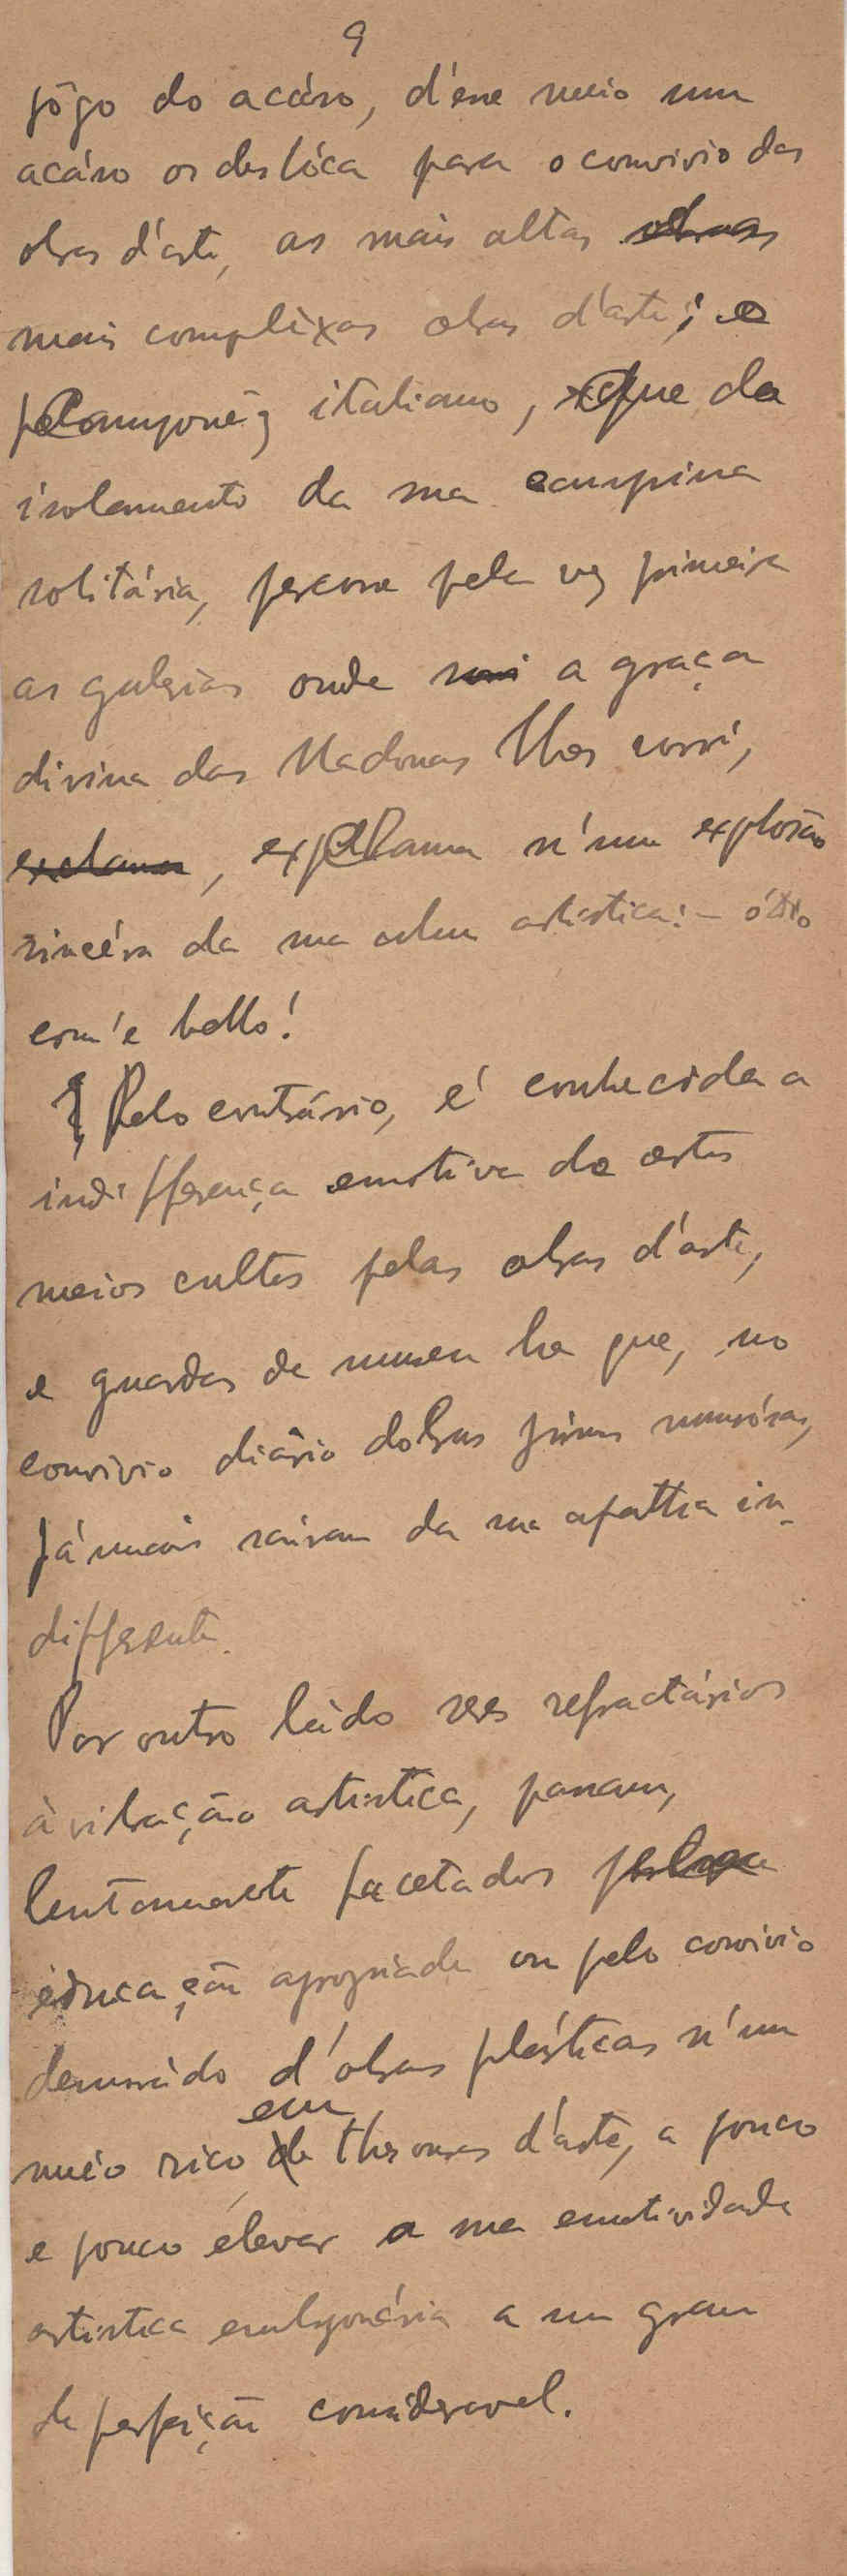 9
jôgo do acáso, d'esse meio um
acáso os deslóca para o convivio das
obras d'arte, as mais altas obras
mais compléxas obras d'arte; e
Camponêz italiano, que do
isolamento da sua campina
solitária, percorre pela vez primeira
as galerias onde a graça
divina das Madonas lhes sorri,
exclama, exclama n'um explosão
sincéra da sua alma artistica: - ó Dio
com'e bello!
Pelo contrário, é conhecida a
indifferença emotiva de certos
meios cultos pelas obras d'arte,
e guardas de museu ha que, no
convivio diário d'obras primas numerósas,
jámais sairam da sua apathia in-
differente.
Por outro ládo seres refractários
à vibração artistica, passam,
lentamente facetados pela
educação apropriada ou pelo convivio
demorádo d'obras plásticas n'um
em
meio rico de thesouros d'arte, a pouco
e pouco elevar a sua emotividade
artistica embryonária a um grau
de perfeição consideravel.